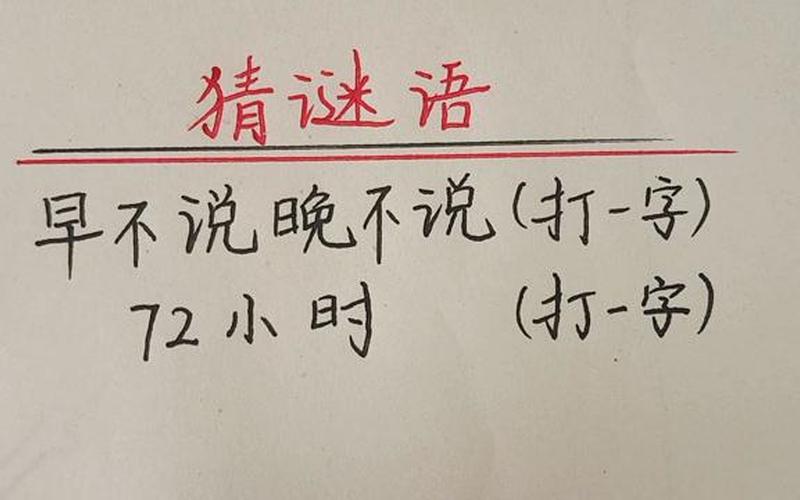 猜谜语
早不说晚不说(打一字)
72小时 (打一字)